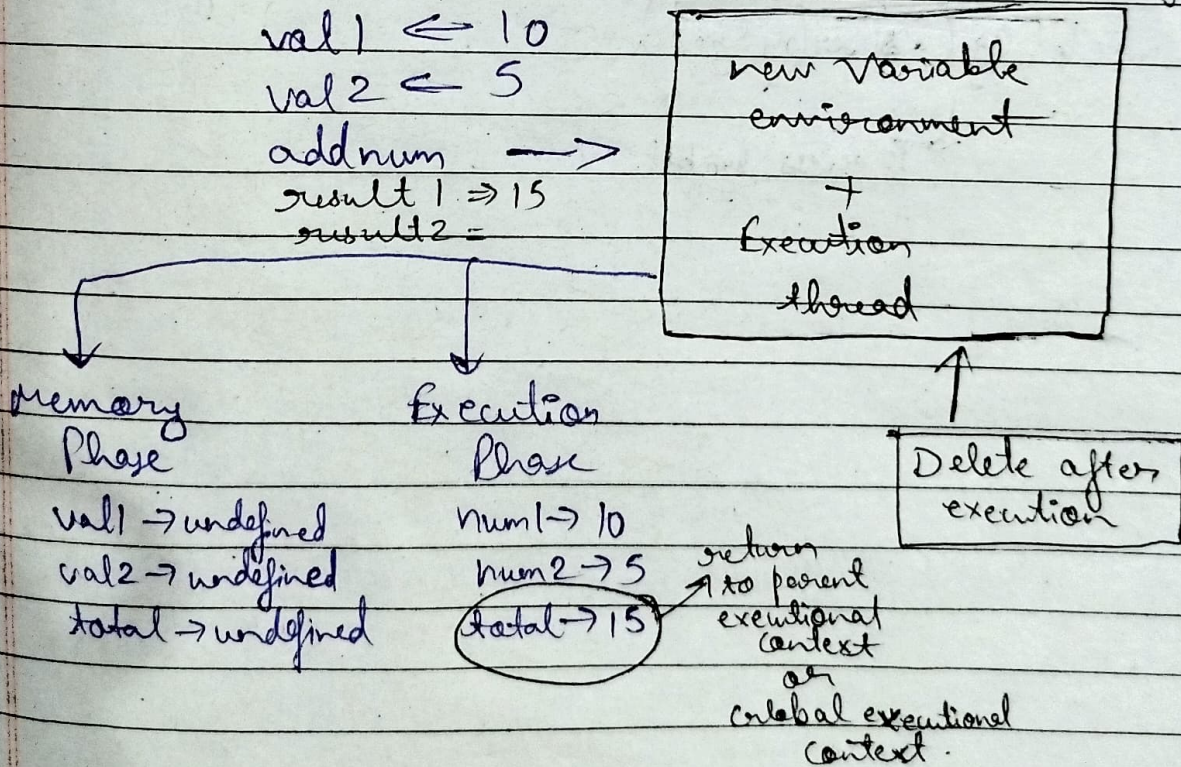 val1 ← 10
val2 ← 5
addnum →
result1 ⇒ 15
result2 =
new Variable
environment
+
Execution
thread
Memory
Phase
val1 → undefined
val2 → undefined
total → undefined
Execution
Phase
num1 → 10
num2 → 5
total → 15
return
to parent
executional
context
or
Global executional
context.
Delete after
execution